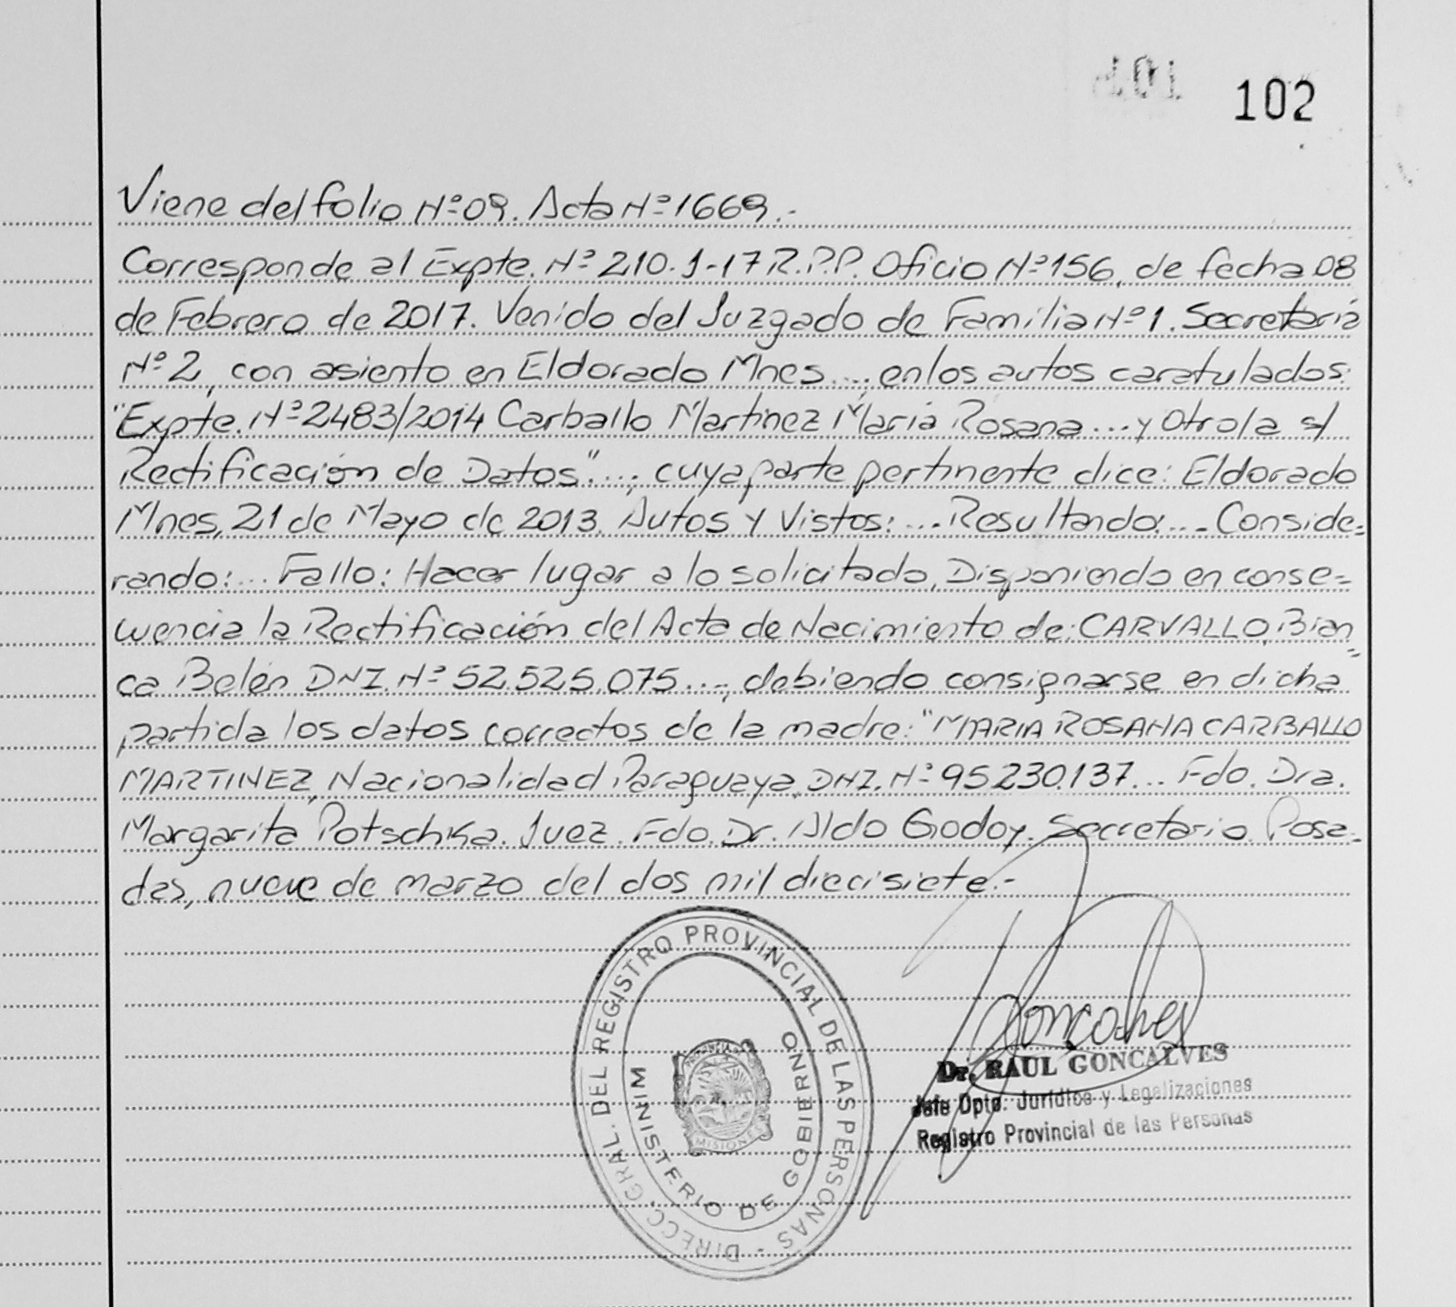 101 102
Viene del folio Nº 09. Acta Nº 1669.-
Corresponde al Expte. Nº 210.1-17 R.P.P. Oficio Nº 156, de fecha 08
de Febrero de 2017. Venido del Juzgado de Familia Nº 1. Secretaria
Nº 2, con asiento en Eldorado Mnes..., en los autos caratulados:
"Expte. Nº 2483/2014 Carballo Martinez María Rosana ... y Otro/a s/
Rectificación de Datos"..., cuya parte pertinente dice: Eldorado
Mnes, 21 de Mayo de 2013. Autos y Vistos: ... Resultando: ... Conside-
rando: ... Fallo: Hacer lugar a lo solicitado, Disponiendo en conse=
cuencia la Rectificación del Acta de Nacimiento de: CARVALLO, Bian=
ca Belén DNI. Nº 52.525.075 ..., debiendo consignarse en dicha
partida los datos correctos de la madre: "MARIA ROSANA CARBALLO
MARTINEZ, Nacionalidad Paraguaya, DNI. Nº 95230.137... Fdo. Dra.
Margarita Potschka. Juez. Fdo. Dr. Aldo Godoy. Secretario. Posa-
das, nueve de marzo del dos mil diecisiete.-
DIRECC. GRAL. DEL REGISTRO PROVINCIAL DE LAS PERSONAS -
MINISTERIO DE GOBIERNO
MISIONES
Goncalves
Dr. RAUL GONCALVES
Jefe Dpto. Jurídico y Legalizaciones
Registro Provincial de las Personas